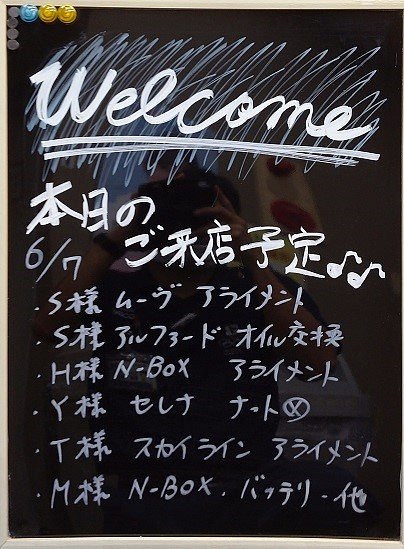 Welcome
本日の
6/7 ご来店予定♪♪
・S様 ムーヴ アライメント
・S様 アルファード オイル交換
・H様 N-BOX アライメント
・Y様 セレナ ナット ⓧ
・T様 スカイライン アライメント
・M様 N-BOX・バッテリ・他